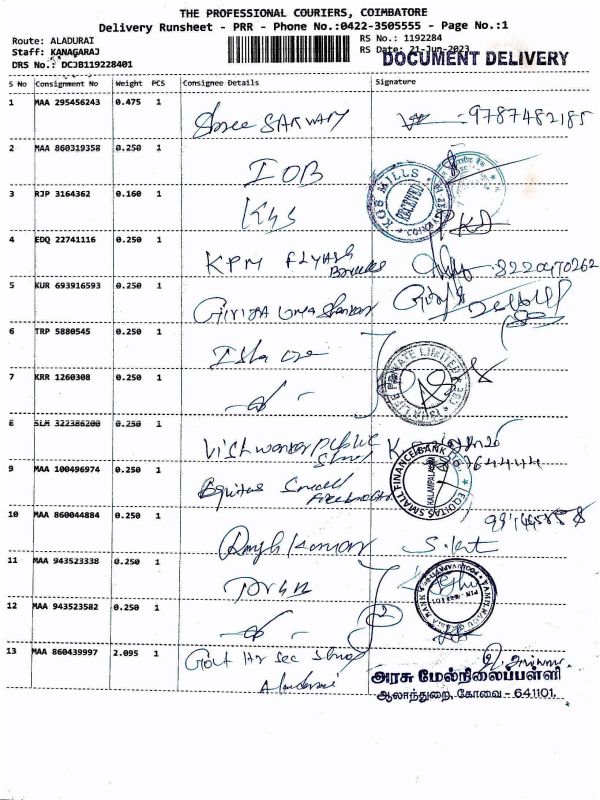 THE PROFESSIONAL COURIERS, COIMBATORE
Delivery Runsheet - PRR - Phone No.:0422-3505555 - Page No.:1
Route: ALADURAI
RS No.: 1192284
Staff: KANAGARAJ
RS Date: 21-Jun-2023
DRS No.: DCJB119228401
DOCUMENT DELIVERY
S No Consignment No Weight PCS Consignee Details Signature
1 MAA 295456243 0.475 1 Shree SARWAY 9787482185
2 MAA 860319358 0.250 1 IOB
3 RJP 3164362 0.160 1 KGS
KGS MILLS
RECEIVED
4 EDQ 22741116 0.250 1 KPM FLYASH Bricks 8220470262
5 KUR 693916593 0.250 1 Girija Uma Shankar
6 TRP 5880545 0.250 1 Isha
7 KRR 1260308 0.250 1
PRIVATE LIMITED
8 SLM 322386200 0.250 1 Vishwankar Public School
9 MAA 100496974 0.250 1 Equitas Small
EQUITAS SMALL FINANCE BANK
10 MAA 860044884 0.250 1 Kumar
11 MAA 943523338 0.250 1 TNGB
12 MAA 943523582 0.250 1
TAMILNADU GRAMA BANK
13 MAA 860439997 2.095 1 Govt Hr Sec School
Alandurai
அரசு மேல்நிலைப்பள்ளி
ஆலாந்துறை, கோவை - 641101.